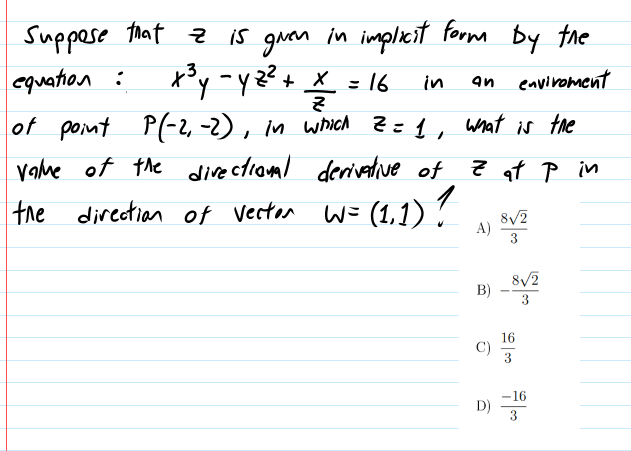 Suppose that z is given in implicit form by the
equation : x³y - yz² + x/z = 16 in an enviroment
of point P(-2, -2), in which z = 1, what is the
value of the directional derivative of z at P in
the direction of vector W = (1,1) ?
A) 8√2/3
B) -8√2/3
C) 16/3
D) -16/3